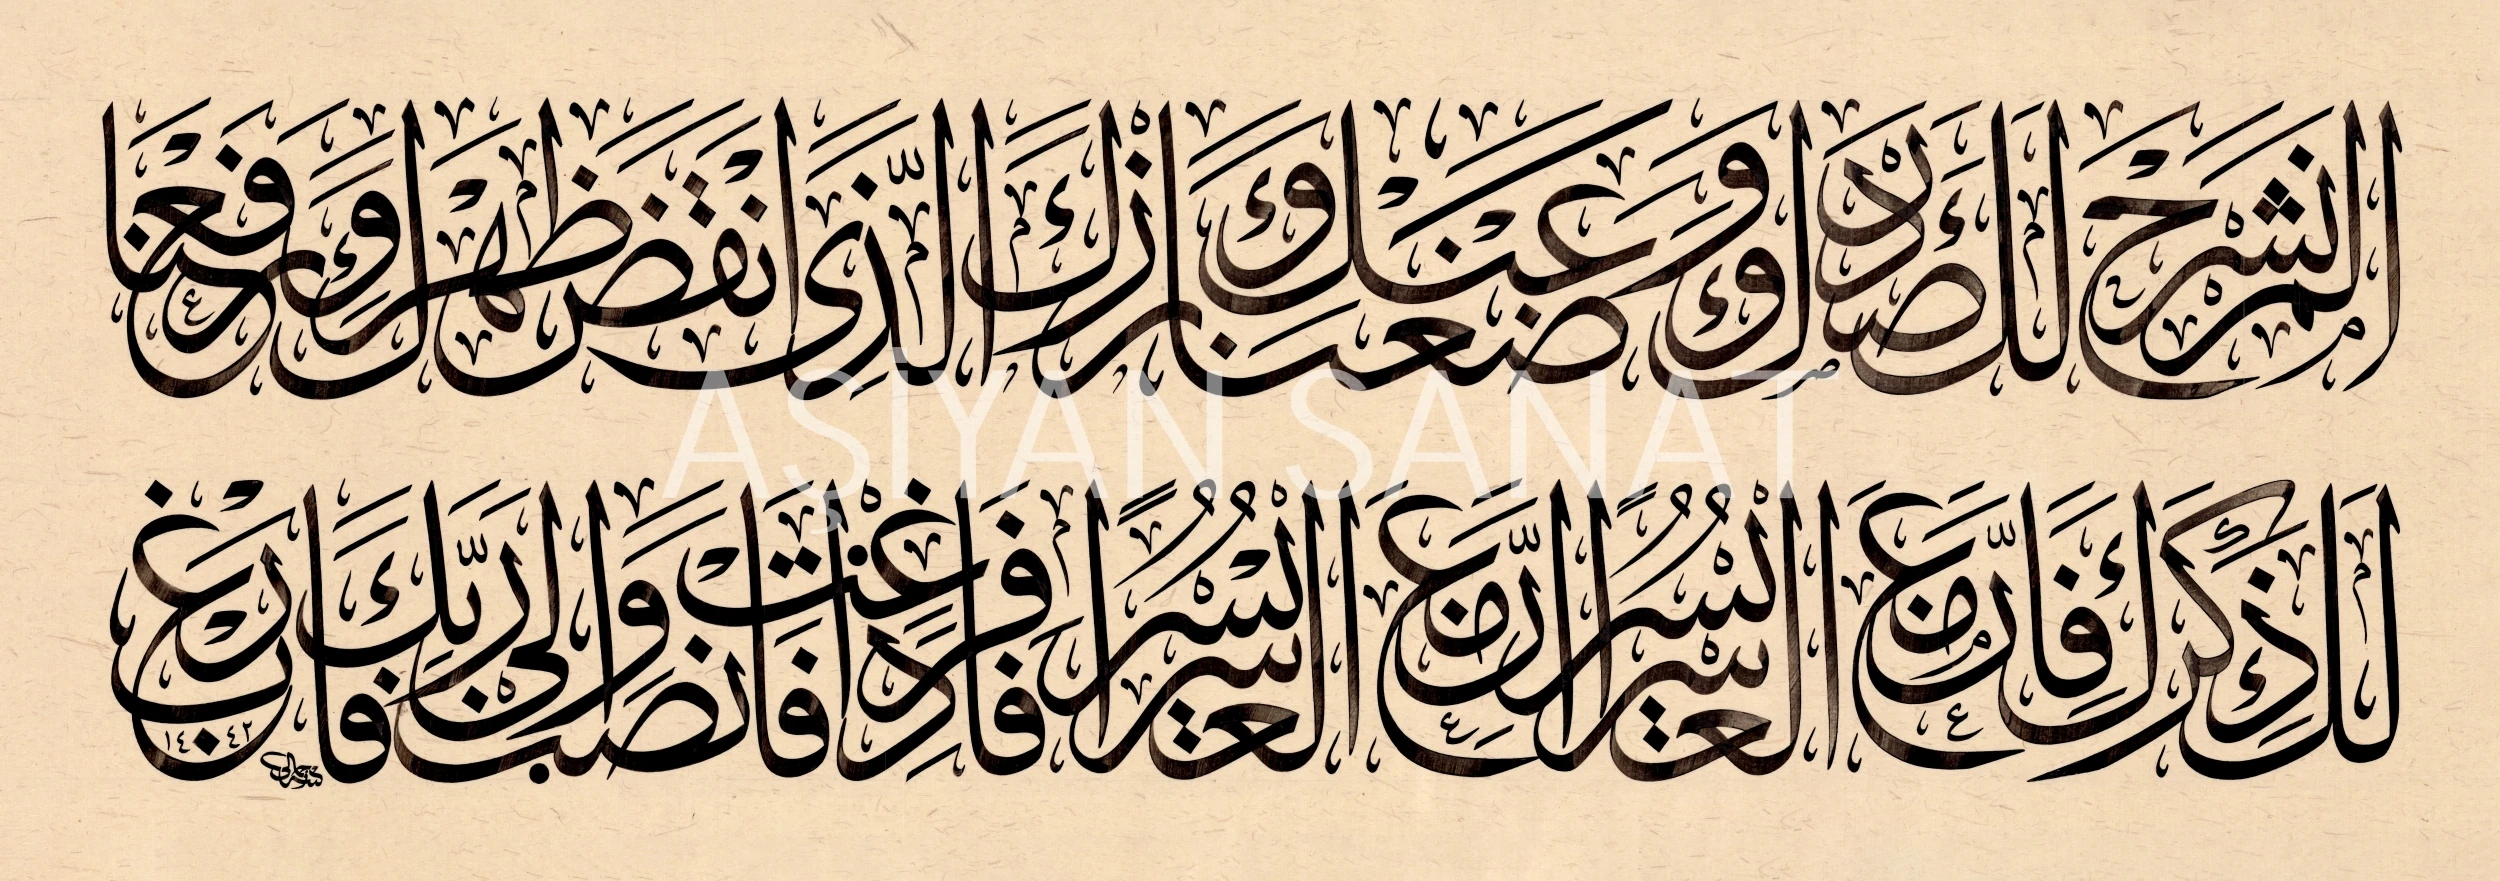 أَلَمْ نَشْرَحْ لَكَ صَدْرَكَ وَوَضَعْنَا عَنْكَ وِزْرَكَ الَّذِي أَنْقَضَ ظَهْرَكَ وَرَفَعْنَا
لَكَ ذِكْرَكَ فَإِنَّ مَعَ الْعُسْرِ يُسْرًا إِنَّ مَعَ الْعُسْرِ يُسْرًا فَإِذَا فَرَغْتَ فَانْصَبْ وَإِلَى رَبِّكَ فَارْغَبْ
١٤٤٢
ASİYAN SANAT